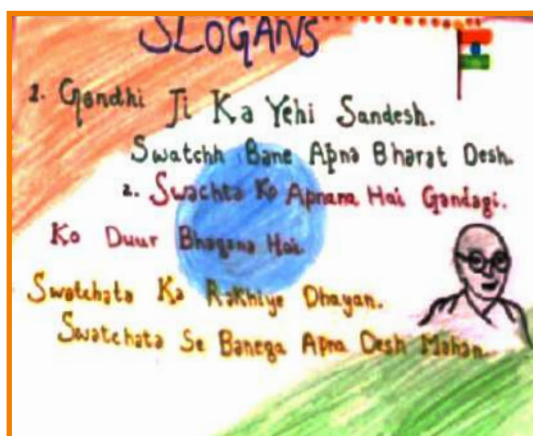 SLOGANS
1. Gandhi Ji Ka Yehi Sandesh.
Swatchh Bane Apna Bharat Desh.
2. Swachta Ko Apnana Hai Gandagi.
Ko Duur Bhagana Hai.
Swatchata Ka Rakhiye Dhayan.
Swatchata Se Banega Apna Desh Mahan.